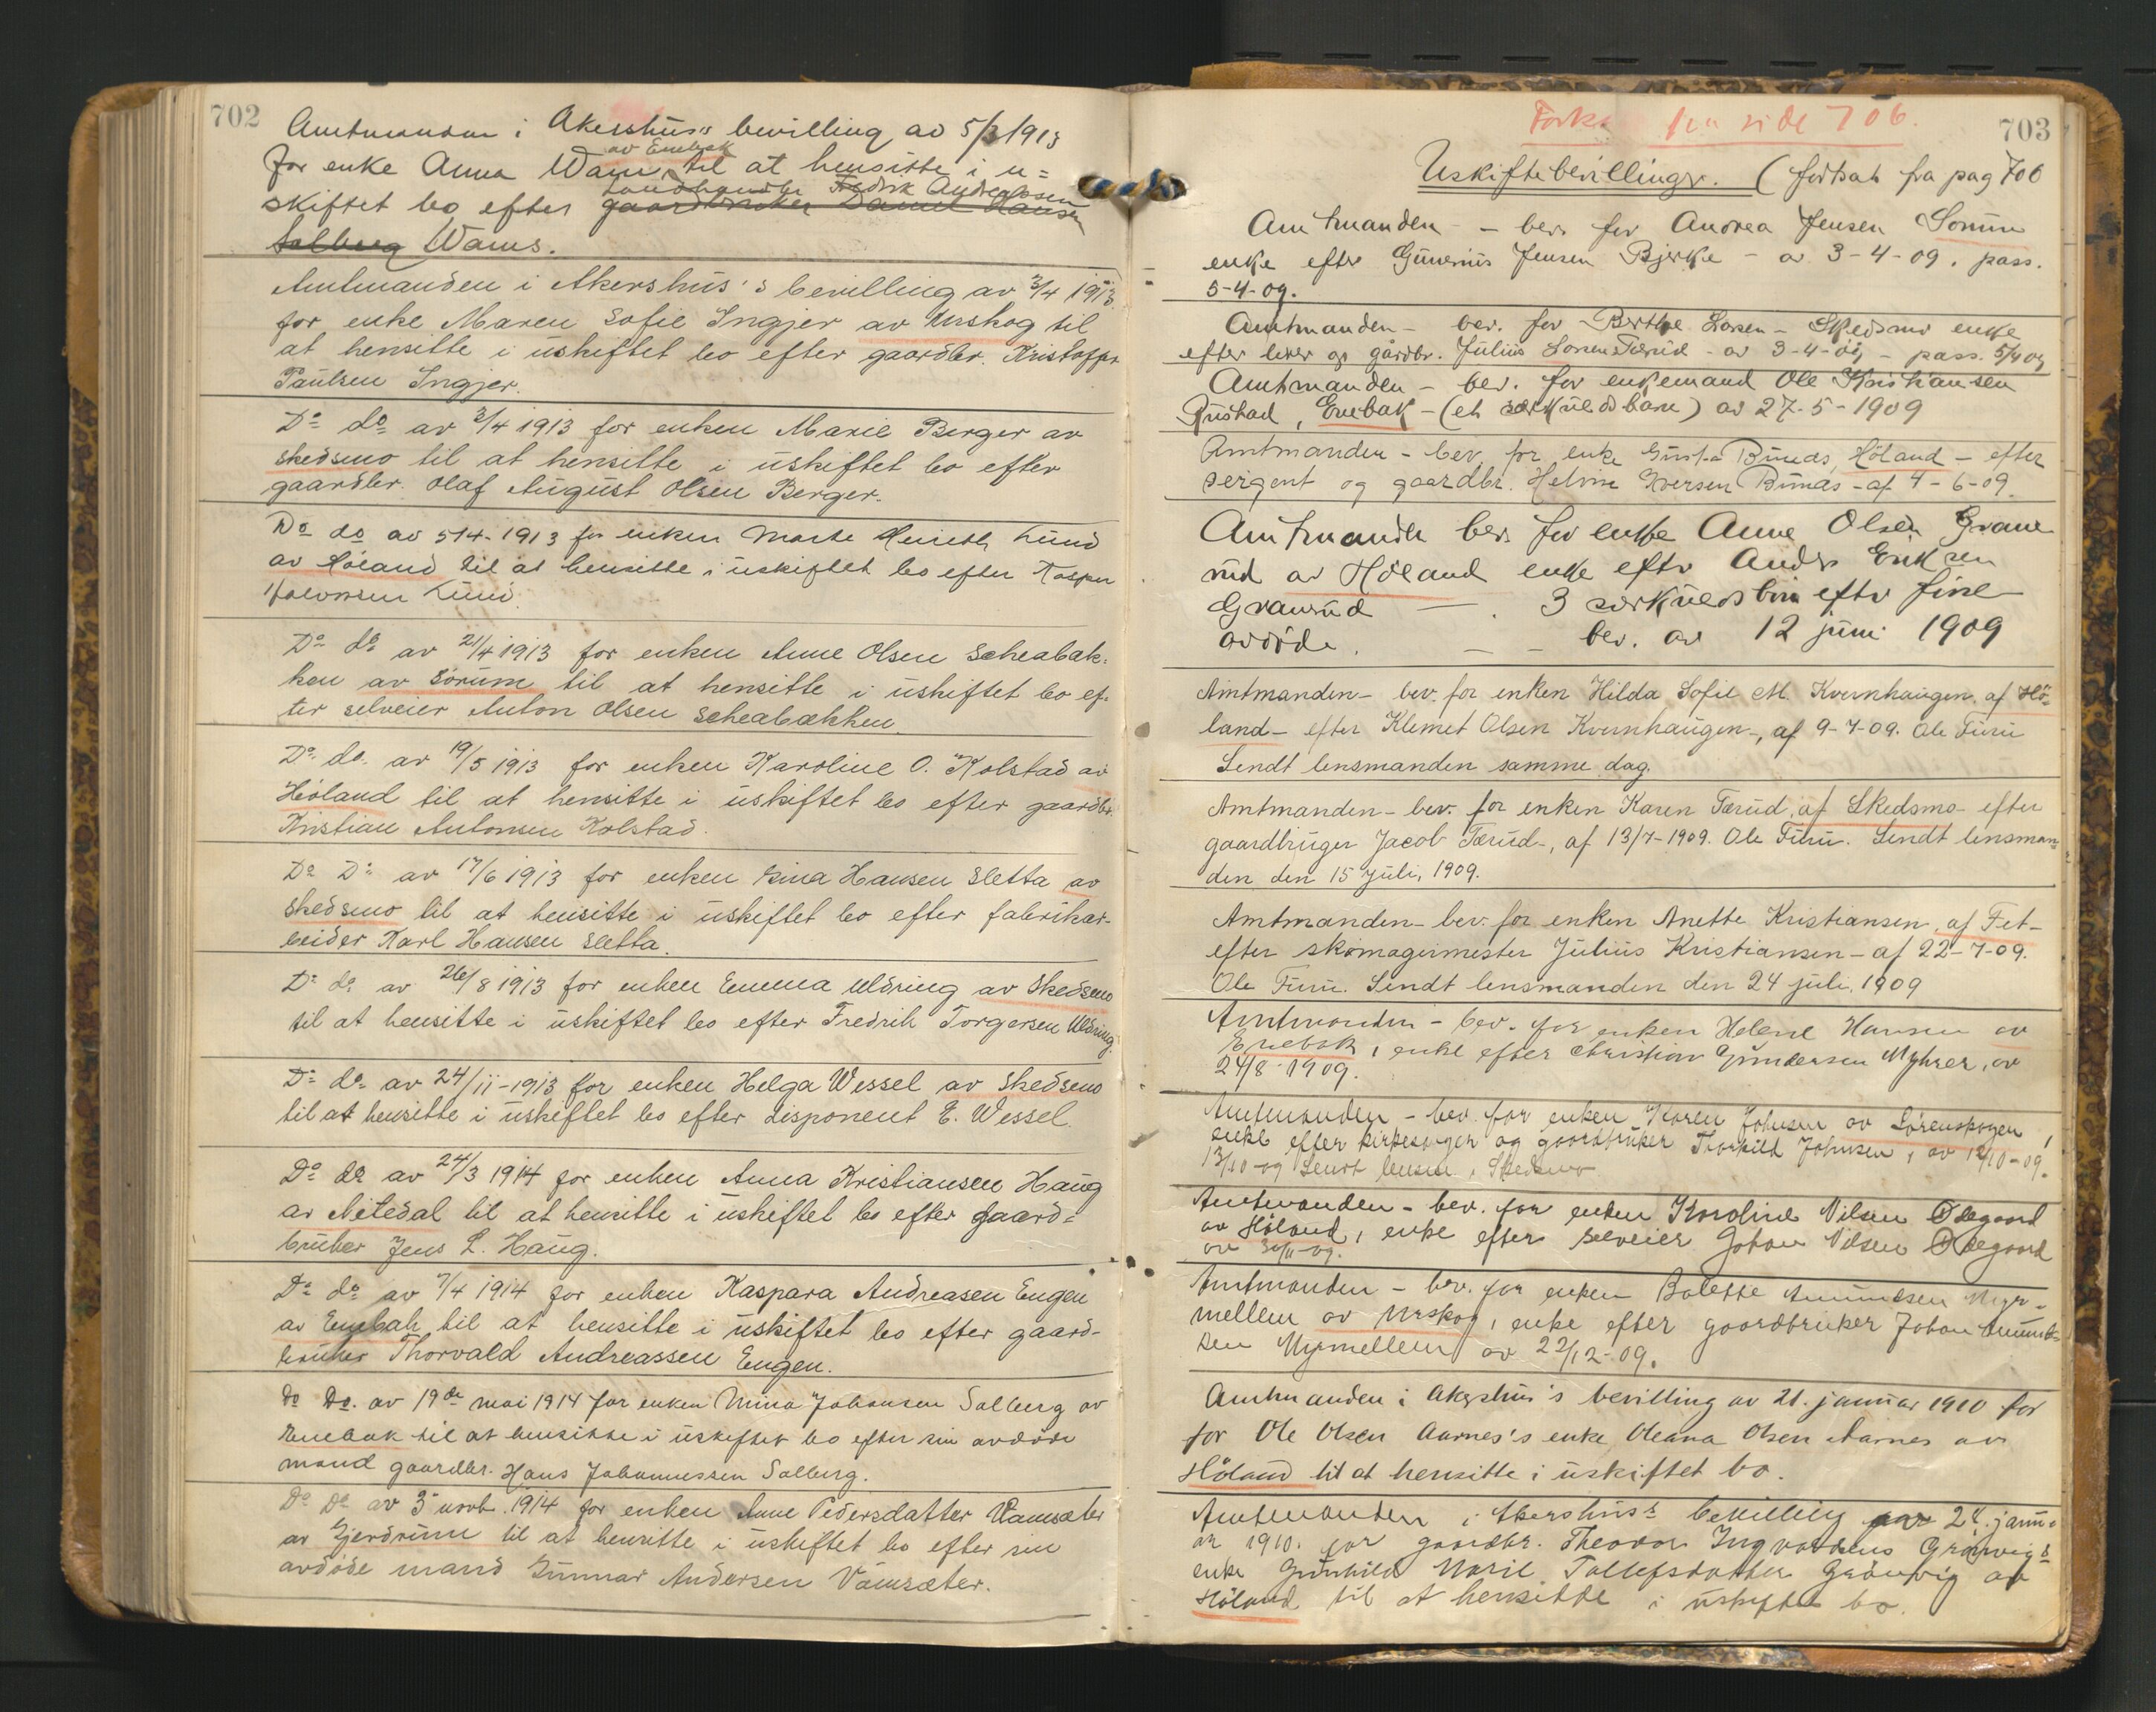 702
Amtmanden i Akershus's bevilling av 5/3 1913
for enke Anna Wam, av Enebak til at hensitte i u=
skiftet bo efter gaardbruker Daniel Hansen landhandler Fredrik Andreassen
Solberg Wams.
Amtmanden i Akershus's bevilling av 3/4 1913
for enke Maren Sofie Ingjer av Urskog til
at hensitte i uskiftet bo efter gaardbr. Kristoffer
Paulsen Ingjer.
Do do av 3/4 1913 for enken Marie Berger av
Skedsmo til at hensitte i uskiftet bo efter
gaardbr. Olaf August Olsen Berger.
Do do av 5/4-1913 for enken Marte Lund
av Höland til at hensitte i uskiftet bo efter Kasper
Halvorsen Lund.
Do do av 21/4 1913 for enken Anne Olsen Scheabak-
ken av Sörum til at hensitte i uskiftet bo ef-
ter selveier Anton Olsen Scheabækken.
Do do. av 19/5 1913 for enken Karoline O. Kolstad av
Höland til at hensitte i uskiftet bo efter gaardbr.
Kristian Antonsen Kolstad.
Do Do av 17/6 1913 for enken Gina Hansen Sletta av
Skedsmo til at hensitte i uskiftet bo efter fabrikar-
beider Karl Hansen Sletta.
Do do av 26/8 1913 for enken Emma Uldring av Skedsmo
til at hensitte i uskiftet bo efter Fredrik Torgersen Uldring.
Do do av 24/11-1913 for enken Helga Wessel av Skedsmo
til at hensitte i uskiftet bo efter disponent E. Wessel.
Do do av 24/3 1914 for enken Anna Kristiansen Haug
av Nitedal til at hensitte i uskiftet bo efter gaard=
bruker Jens L. Haug.
Do do av 7/4 1914 for enken Kaspara Andreasen Engen
av Enebak til at hensitte i uskiftet bo efter gaard-
bruker Thorvald Andreassen Engen.
Do Do. av 19de mai 1914 for enken Mina Johansen Solberg av
Enebak til at hensitte i uskiftet bo efter sin avdöde
mand gaardbr. Hans Johannessen Solberg.
Do Do av 3 novb. 1914 for enken Anne Pedersdatter Vamsæter
av Gjerdrum til at hensitte i uskiftet bo efter sin
avdöde mand Gunnar Andersen Vamsæter.
703
Forts. fra side 706.
Uskiftebevillinger. (fortsat fra pag 706
Amtmanden - bev. for Andrea Jensen Sörum
enke efter Gunerius Jensen Bjerke - av 3-4-09. pass.
5-4-09.
Amtmanden - bev. for Berthe Larsen - Skedsmo enke
efter leier og gårdbr. Julius Larsen Tærud - av 3-4-09 - pass. 5/4 09
Amtmanden - bev. for enkemand Ole Kristiansen
Rustad, Enebak - (et særkuldsbarn) av 27-5-1909
Amtmanden - bev. for enke Gusta Bunæs, Höland - efter
sergent og gaardbr. Helm Iversen Bunæs - af 4-6-09.
Amtmanden bev. for enke Anne Olsen Grane
rud av Höland enke efter Anders Eriksen
Granrud - . 3 særkuldsbarn efter sine
avdöde. - - bev. av 12 juni 1909
Amtmanden - bev. for enken Hilda Sofie M. Kvernhaugen, af Hö-
land - efter Klemet Olsen Kvernhaugen -, af 9-7-09. Ole Furu
Sendt lensmanden samme dag.
Amtmanden - bev. for enken Karen Tærud, af Skedsmo - efter
gaardbruger Jacob Tærud -, af 13/7-1909. Ole Furu. Sendt lensman
den den 15 juli, 1909.
Amtmanden - bev. for enken Anette Kristiansen, af Fet -
efter skomagermester Julius Kristiansen - af 22-7-09.
Ole Furu. Sendt lensmanden den 24 juli, 1909
Amtmanden - bev. for enken Helene Hansen av
Enebak, enke efter Christian Gundersen Myhrer, av
24/8-1909.
Amtmanden - bev. for enken Karen Johnsen av Lörenskogen,
enke efter kirkesanger og gaardbruker Thorkild Johnsen, av 12/10-09.
13/10-09 Sendt lensm. i Skedsmo
Amtmanden - bev. for enken Karoline Nilsen Ödegaard
av Höland, enke efter selveier Johan Nilsen Ödegaard
av 30/11-09.
Amtmanden - bev. for enken Bolette Amundsen Myr-
mellem av Urskog, enke efter gaardbruker Johan Amund-
sen Myrmellem av 22/12-09.
Amtmanden i Akershus's bevilling av 21. januar 1910 for
for Ole Olsen Aarnes's enke Oleana Olsen Aarnes av
Höland til at hensitte i uskiftet bo.
Amtmanden i Akershus's bevilling av 24. janu-
ar 1910. for gaardbr. Theodor Ingvaldsens Grönvigs
enke Gunhild Marie Tollefsdatter Grönvig av
Höland til at hensitte i uskiftet bo.